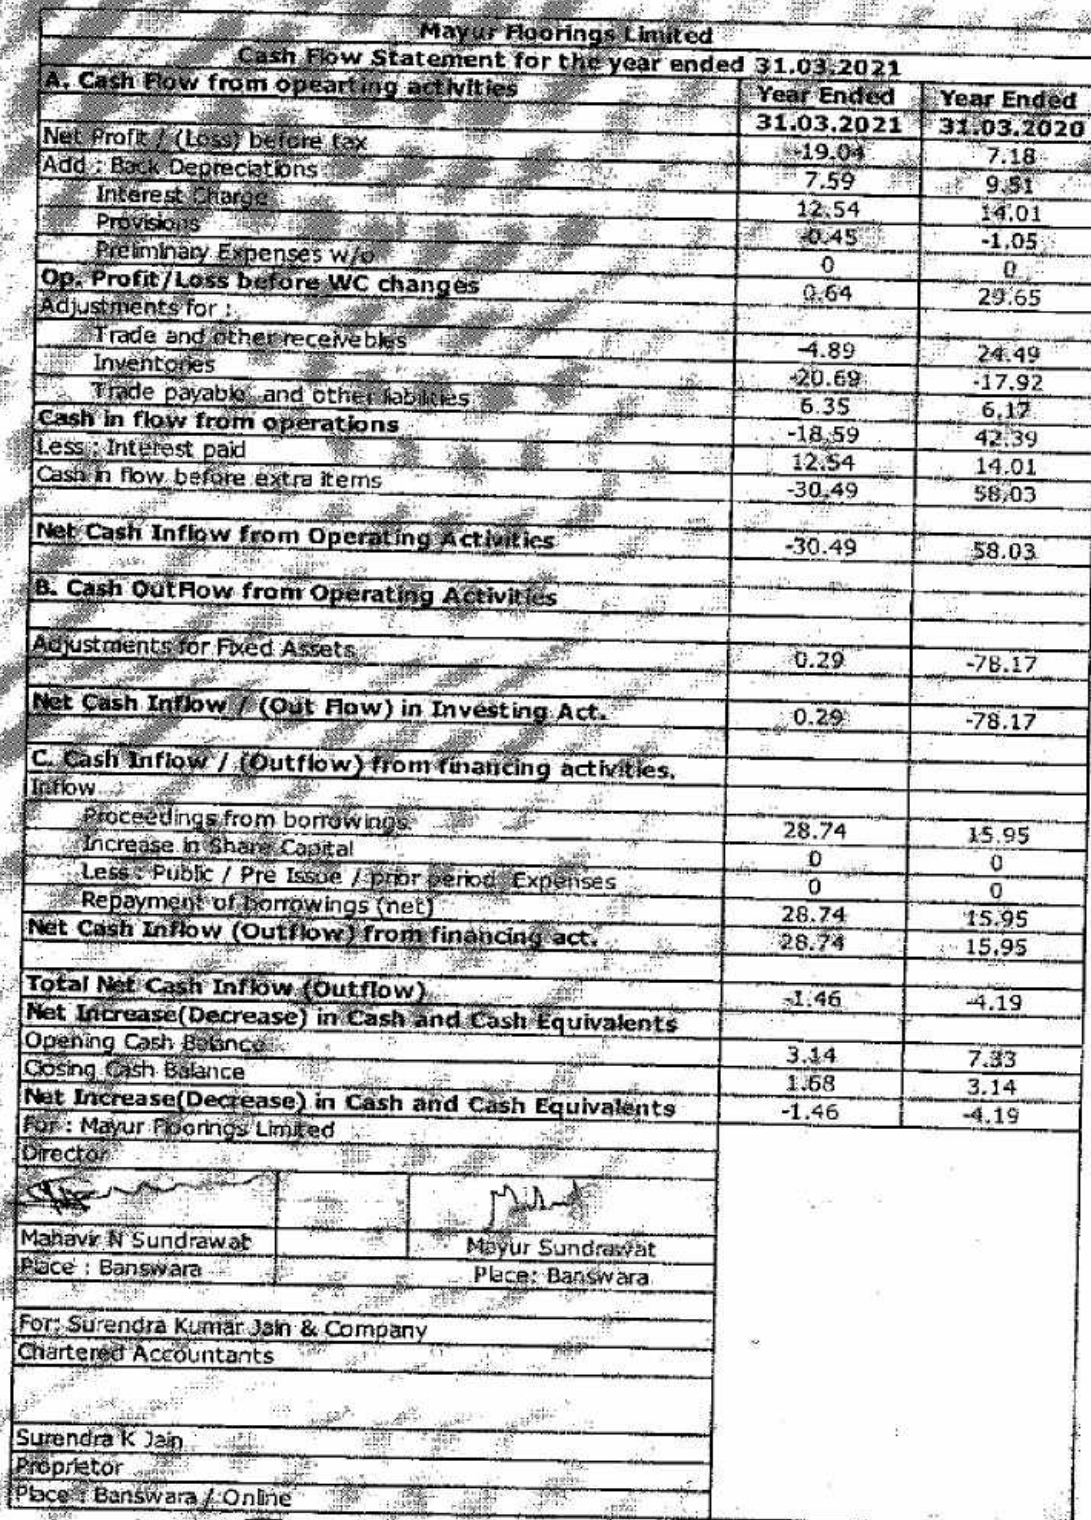 Mayur Floorings Limited
Cash Flow Statement for the year ended 31.03.2021
A. Cash Flow from opearting activities Year Ended Year Ended
31.03.2021 31.03.2020
Net Profit / (Loss) before tax -19.04 7.18
Add : Back Depreciations 7.59 9.51
Interest Charge 12.54 14.01
Provisions -0.45 -1.05
Preliminary Expenses w/o 0 0
Op. Profit/Loss before WC changes 0.64 29.65
Adjustments for :
Trade and other receivebles -4.89 24.49
Inventories -20.69 -17.92
Trade payable and other liabilities 6.35 6.17
Cash in flow from operations -18.59 42.39
Less : Interest paid 12.54 14.01
Cash in flow before extra items -30.49 58.03
Net Cash Inflow from Operating Activities -30.49 58.03
B. Cash OutFlow from Operating Activities
Adjustments for Fixed Assets 0.29 -78.17
Net Cash Inflow / (Out Flow) in Investing Act. 0.29 -78.17
C. Cash Inflow / (Outflow) from financing activities.
Inflow
Proceedings from borrowings 28.74 15.95
Increase in Share Capital 0 0
Less : Public / Pre Issue / prior period Expenses 0 0
Repayment of borrowings (net) 28.74 15.95
Net Cash Inflow (Outflow) from financing act. 28.74 15.95
Total Net Cash Inflow (Outflow) -1.46 -4.19
Net Increase(Decrease) in Cash and Cash Equivalents
Opening Cash Balance 3.14 7.33
Closing Cash Balance 1.68 3.14
Net Increase(Decrease) in Cash and Cash Equivalents -1.46 -4.19
For : Mayur Floorings Limited
Director
Mahavir N Sundrawat Mayur Sundrawat
Place : Banswara Place: Banswara
For: Surendra Kumar Jain & Company
Chartered Accountants
Surendra K Jain
Proprietor
Place : Banswara / Online